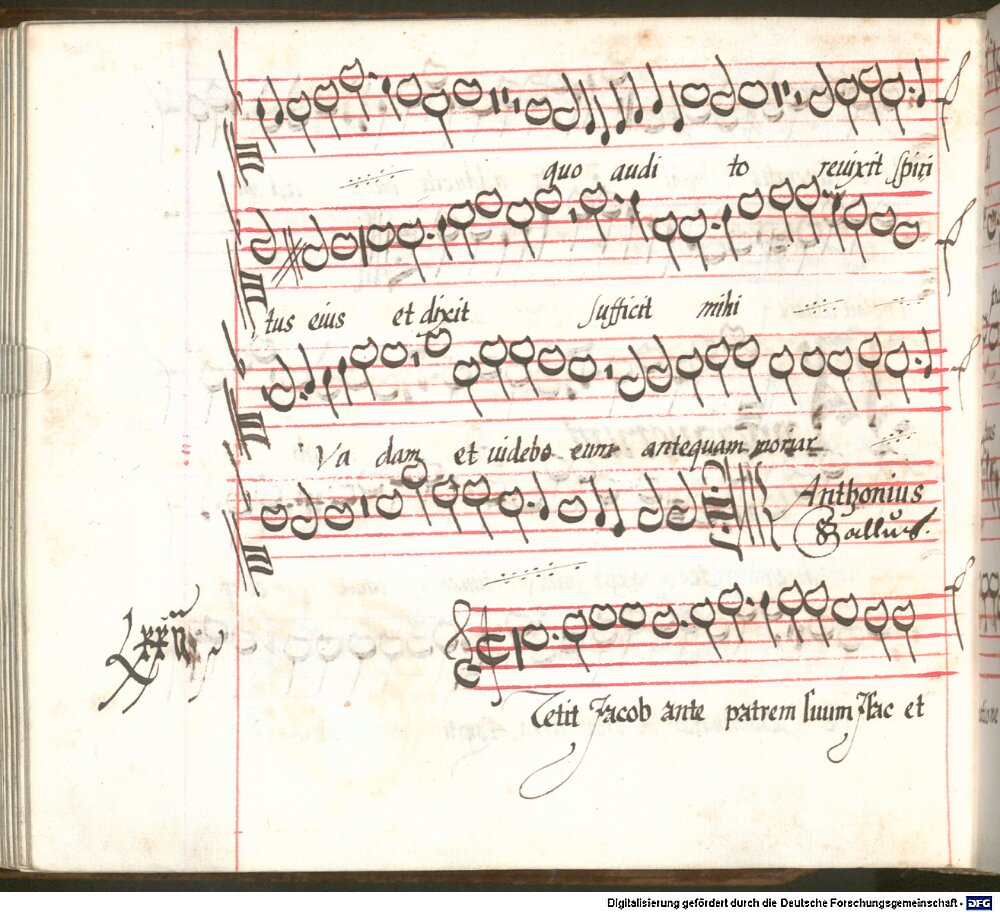 quo audi to reuixit spiri
tus eius et dixit sufficit mihi
Va dam et uidebo eum antequam moriar
Anthonius
Gallus.
Lxxij
Stetit Jacob ante patrem suum Isac et
Digitalisierung gefördert durch die Deutsche Forschungsgemeinschaft - DFG